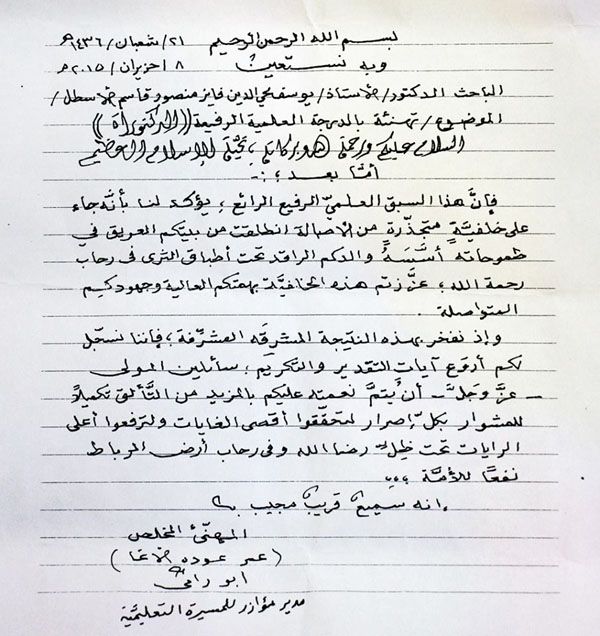 بسم الله الرحمن الرحيم ٢١/شعبان/١٤٣٦هـ
وبه نستعين ٨/حزيران/٢٠١٥م
الباحث الدكتور/الأستاذ/يوسف محي الدين فايز منصور قاسم الأسطل/
الموضوع/تهنئة بالدرجة العلمية الرفيعة ((الدكتوراة))
السلام عليكم ورحمة الله وبركاته، تحيّة الإسلام العظيم
أمّا بعد؛:-
فإنَّ هذا السبق العلميّ الرفيع الرائع، يؤكد لنا بأنّه جاء
على خلفيّةٍ متجذّرةٍ من الأصالة انطلقت من بيتكم العريق في
طموحاته أسَّسَهُ والدكم الراقد تحت أطباق الثرى في رحاب
رحمة الله؛ عزّزتم هذه الخلفيَّة بهمتكم العالية وجهودكم
المتواصلة.
وإذ نفخر بهذه النتيجة المشرقه المشرّفة؛ فإننا نسجّل
لكم أروع آيات التقدير والتكريم، سائلين المولى
- عزَّ وجلَّ - أن يُتمَّ نعمته عليكم بالمزيد من التَّألق تكميلاً
للمشوار بكلّ إصرار لتحقّقوا أقصى الغايات ولترفعوا أعلى
الرايات تحت ظلِّ رضا الله وفي رحاب أرض الرباط
نفعًا للأمَّة ،،،
إنه سميعٌ قريبٌ مجيب
المهنّئ المخلص
(عمر عوده الأغا)
ابو رامي
مدير مؤازر للمسيرة التعليميَّة